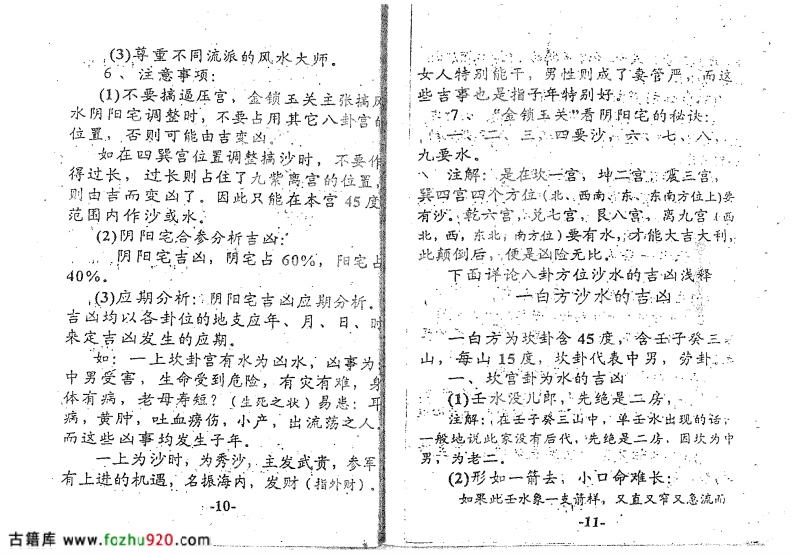 (3)尊重不同流派的风水大师。
6、注意事项:
(1)不要搞逼压宫，金锁玉关主张搞风
水阴阳宅调整时，不要占用其它八卦宫的
位置，否则可能由吉变凶。
如在四巽宫位置调整搞沙时，不要作
得过长，过长则占住了九紫离宫的位置，
则由吉而变凶了。因此只能在本宫45度
范围内作沙或水。
(2)阴阳宅合参分析吉凶:
阴阳宅吉凶，阴宅占60%，阳宅占
40%。
(3)应期分析:阴阳宅吉凶应期分析。
吉凶均以各卦位的地支应年、月、日、时
来定吉凶发生的应期。
如:一上坎卦宫有水为凶水，凶事为
中男受害，生命受到危险，有灾有难，身
体有病，老母寿短?(生死之状)易患:耳
病，黄肿，吐血痨伤，小产，出流荡之人，
而这些凶事均发生子年。
一上为沙时，为秀沙，主发武贵，参军
有上进的机遇，名振海内，发财(指外财)。
-10-
女人特别能干，男性则成了妻管严，而这
些吉事也是指子年特别好。
7、"金锁玉关"看阴阳宅的秘诀:
一、二、三、四要沙，六、七、八、
九要水。
注解:是在坎一宫，坤二宫，震三宫，
巽四宫四个方位(北、西南、东、东南方位上)要
有沙。乾六宫，兑七宫，艮八宫，离九宫(西
北，西，东北，南方位)要有水，才能大吉大利，
此颠倒后，便是凶险无比。
下面详论八卦方位沙水的吉凶浅释
一白方沙水的吉凶
一白方为坎卦含45度，含壬子癸三
山，每山15度，坎卦代表中男，劳卦。
一、坎宫卦为水的吉凶
(1)壬水没儿郎，先绝是二房，
注解:在壬子癸三山中，单壬水出现的话，
一般地说此家没有后代，先绝是二房，因坎为中
男，为老二。
(2)形如一箭去，小口命难长:
如果此壬水象一支箭样，又直又窄又急流而
-11-
古籍库 www.fozhu920.com